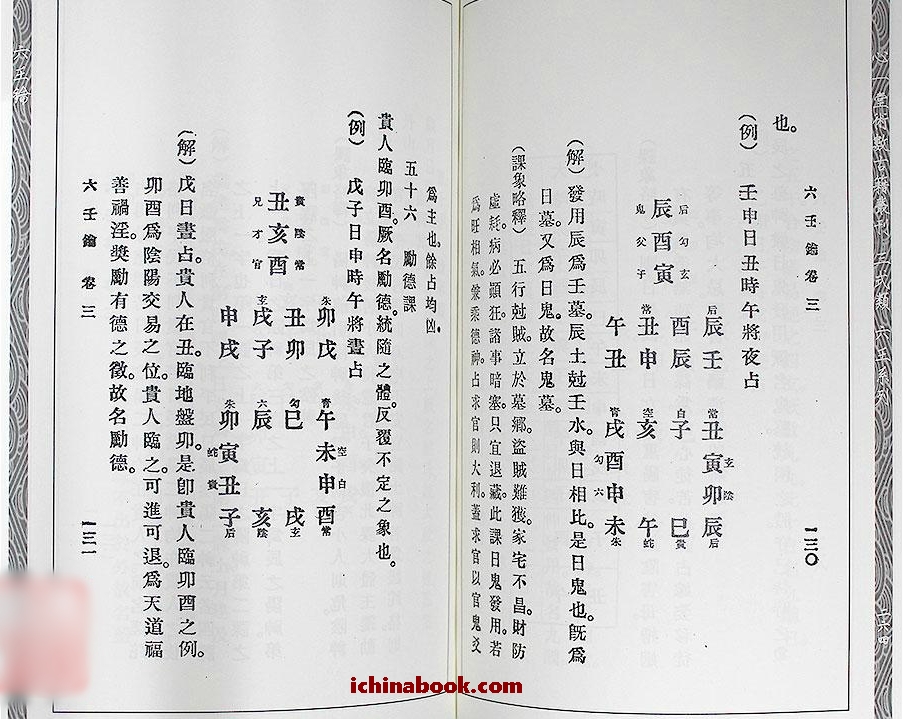 六壬鑰卷三
一三〇
也。
(例) 壬申日丑時午將夜占
后 勾 玄
辰酉寅
鬼 父 子
后 辰壬
酉辰
常 丑申
午丑
常 丑寅卯辰 后
玄 陰
白 子 巳 貴
空 亥 午 蛇
青 戌酉申未 朱
勾 六
(解) 發用辰爲壬墓。辰土尅壬。水與日相比。是日鬼也。既爲
日墓。又爲日鬼。故名鬼墓。
(課象略釋) 五行尅賊。立於墓鄉。盜賊難獲。家宅不昌。財防
虛耗。病必顚狂。諸事暗塞。只宜退藏。此課日鬼發用。若
爲旺相氣。爺乘德神。占求官則大利。蓋求官以官鬼爻
爲主也。餘占均凶。
五十六 勵德課
貴人臨卯酉。厥名勵德。統隨之體。反覆不定之象也。
(例) 戊子日申時午將晝占
貴 陰 常
丑亥酉
兄 才 官
朱 卯戊
丑卯
玄 戌子
申戌
青 午未申酉 常
空 白
勾 巳 戌 玄
六 辰 亥 陰
朱 卯寅丑子 后
蛇 貴
(解) 戊日晝占。貴人在丑。臨地盤卯。是卽貴人臨卯酉之例。
卯酉爲陰陽交易之位。貴人臨之。可進可退。爲天道福
善禍淫。獎勵有德之徵。故名勵德。
六壬鑰 卷三
一三一
六壬鑰
ichinabook.com